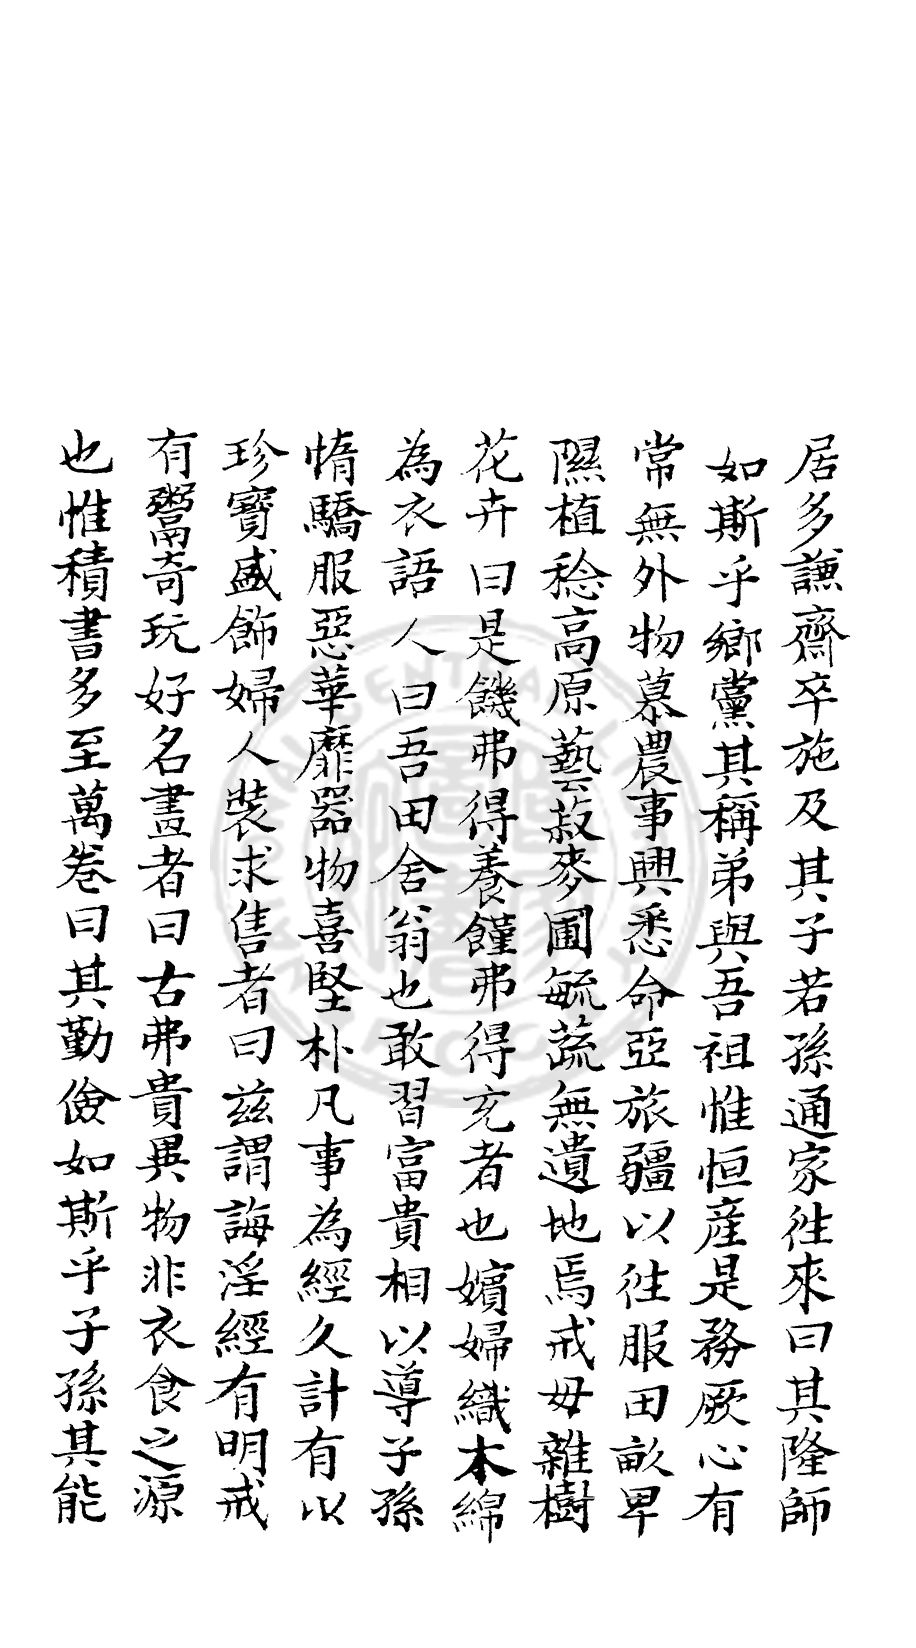 居多謙齋卒施及其子若孫通家徃來曰其隆師
如斯乎鄉黨其稱弟與吾祖惟恒産是務厥心有
常無外物慕農事興悉命亞旅疆以徃服田畝卑
隰植稌高原藝菽麥圃毓蔬無遺地焉戒毋雜樹
花卉曰是饑弗得養饉弗得充者也嬪婦織木綿
為衣語人曰吾田舍翁也敢習富貴相以導子孫
惰驕服惡華靡器物喜堅朴凡事為經久計有以
珍寶盛飾婦人裝求售者曰兹謂誨淫經有明戒
有鬻奇玩好名畫者曰古弗貴異物非衣食之源
也惟積書多至萬卷曰其勤儉如斯乎子孫其能